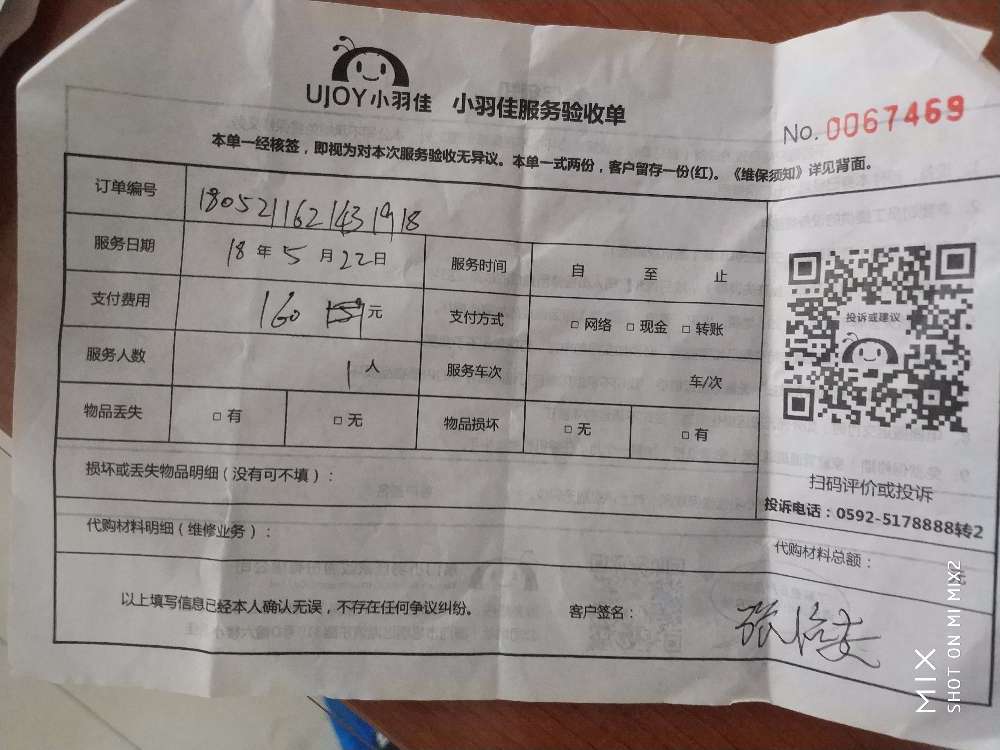 UJOY小羽佳 小羽佳服务验收单
No. 0067469
本单一经核签，即视为对本次服务验收无异议。本单一式两份，客户留存一份(红)。《维保须知》详见背面。
订单编号 1805211621431918
服务日期 18年5月22日 服务时间 自 至 止
支付费用 160 元 支付方式 □ 网络 □ 现金 □ 转账
服务人数 1人 服务车次 车/次
物品丢失 □ 有 □ 无 物品损坏 □ 无 □ 有
投诉或建议
扫码评价或投诉
投诉电话：0592-5178888转2
损坏或丢失物品明细（没有可不填）：
代购材料明细（维修业务）：
代购材料总额：
以上填写信息已经本人确认无误，不存在任何争议纠纷。 客户签名：
MIX
SHOT ON MI MIX2